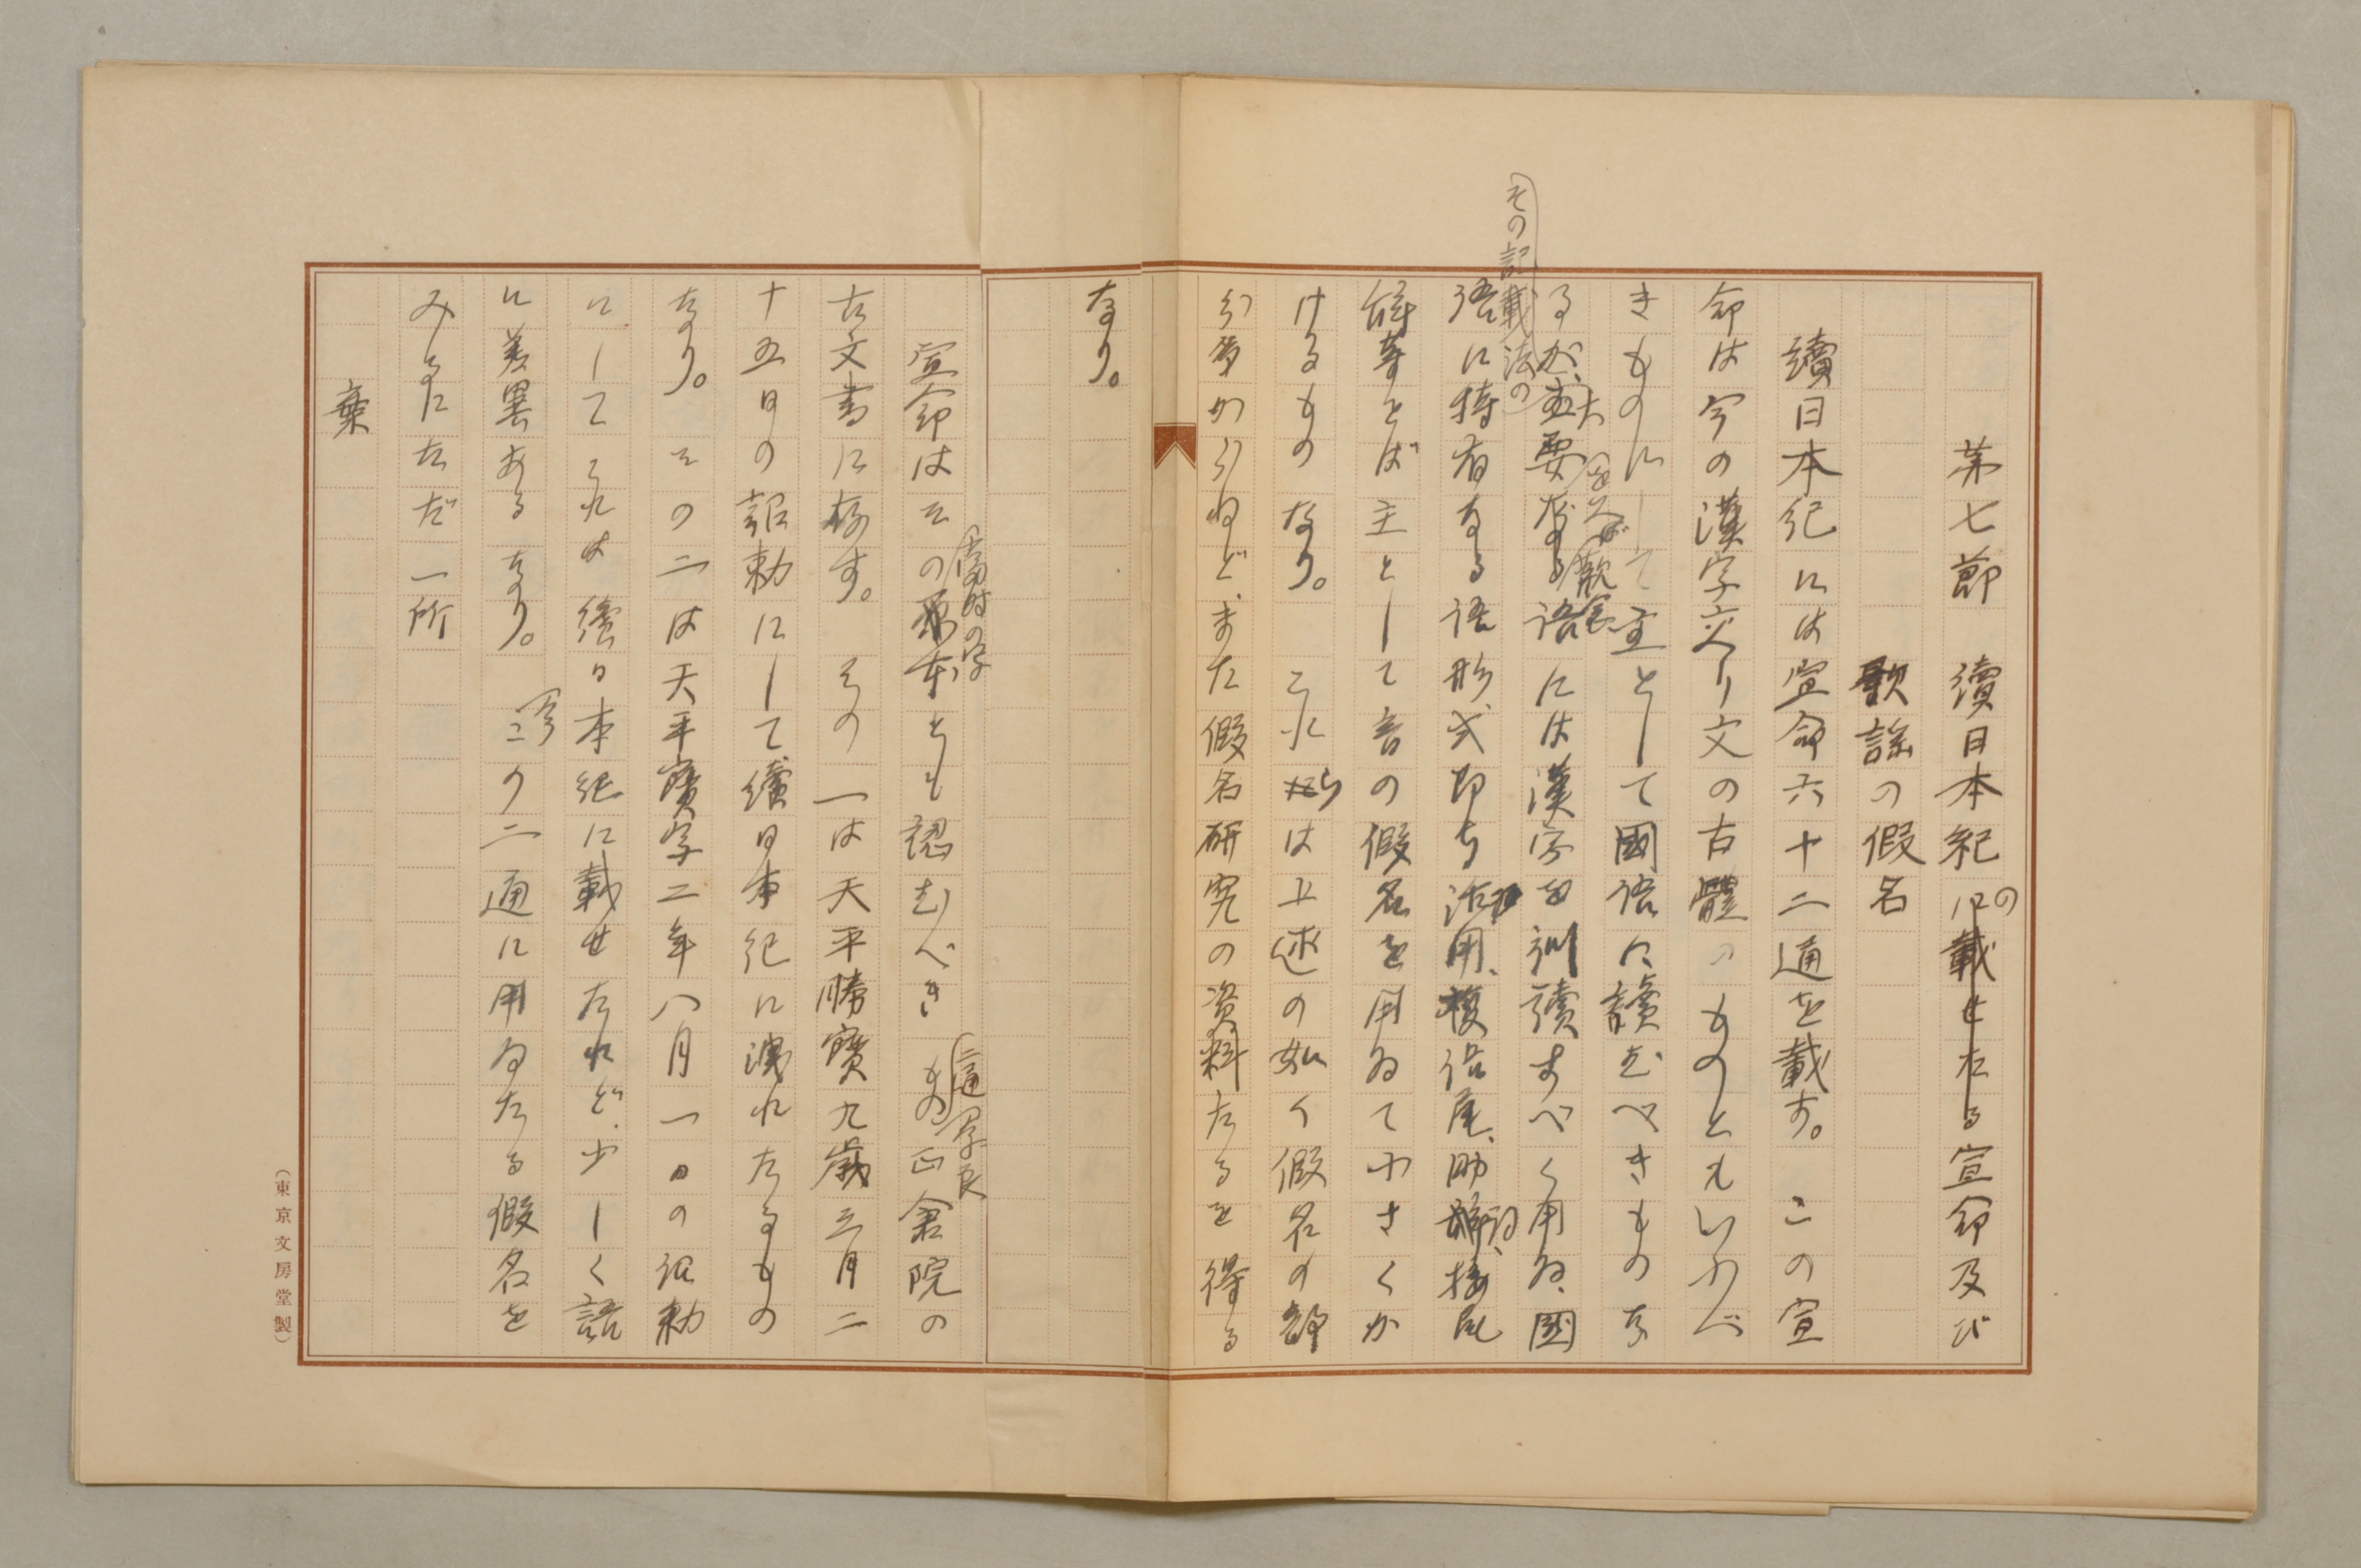 第七節　續日本紀の宣命及び
歌謠の假名
續日本紀には宣命六十二通を載す。この宣
命は今の漢字交り文の古體のものともいふべ
きものにして主として國語に讀むべきものな
るが、その記載法の大要をいへば觀念語には漢字を訓讀すべく用ゐ、國
語に特有なる語形式即ち活用、複語尾、助詞、接尾
辭等をば主として音の假名を用ゐて小さくか
けるものなり。これらは上述の如く假名の部
分多からねど、また假名研究の資料たるを得る
なり。
宣命はその當時の原本とも認むべきもの二通奈良正倉院の
古文書に存す。その一は天平勝寶九歳三月二
十五日の詔勅にして續日本紀に洩れたるもの
なり。その二は天平寶字二年八月一日の詔勅
にしてこれは續日本紀に載せたれど、少しく語
に差異あるなり。今この二通に用ゐたる假名を
みるにただ一所
棄
（東京文房堂製）